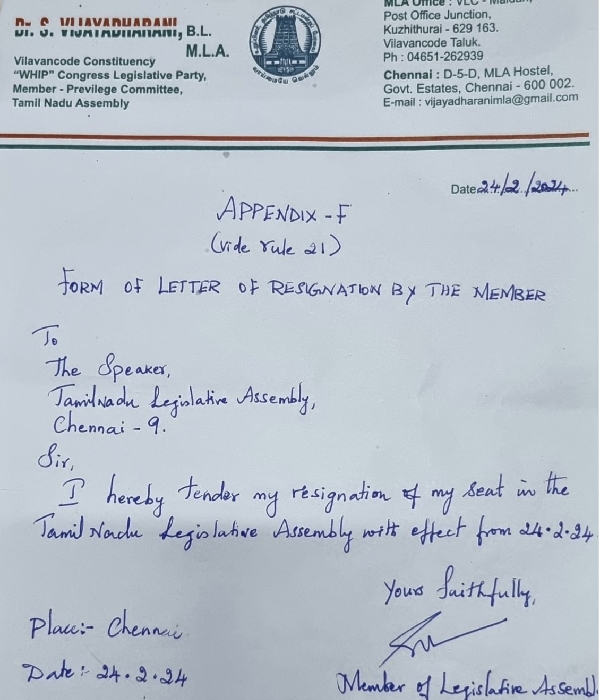 Dr. S. VIJAYADHARANI, B.L.
M.L.A.
Vilavancode Constituency
"WHIP" Congress Legislative Party,
Member - Previlege Committee,
Tamil Nadu Assembly
MLA Office : VLC -
Post Office Junction,
Kuzhithurai - 629 163.
Vilavancode Taluk.
Ph : 04651-262939
Chennai : D-5-D, MLA Hostel,
Govt. Estates, Chennai - 600 002.
E-mail : vijayadharanimla@gmail.com
Date 24/2/2024
APPENDIX - F
(vide rule 21)
FORM OF LETTER OF RESIGNATION BY THE MEMBER
To
The Speaker,
Tamilnadu Legislative Assembly,
Chennai - 9.
Sir,
I hereby tender my resignation of my seat in the
Tamil Nadu Legislative Assembly with effect from 24.2.24
Yours faithfully,
Place:- Chennai
Date:- 24.2.24
Member of Legislative Assembl